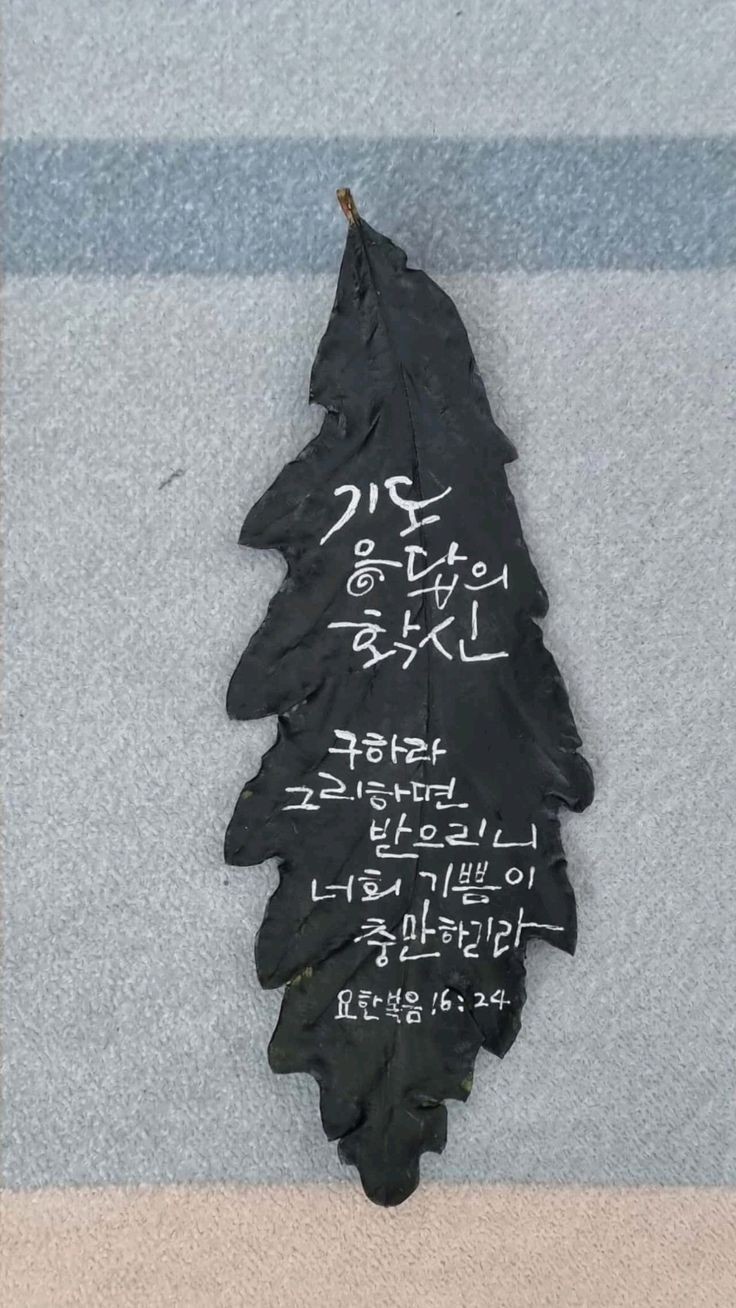 기도
응답의
확신
구하라
그리하면
받으리니
너희 기쁨이
충만하리라
요한복음 16:24